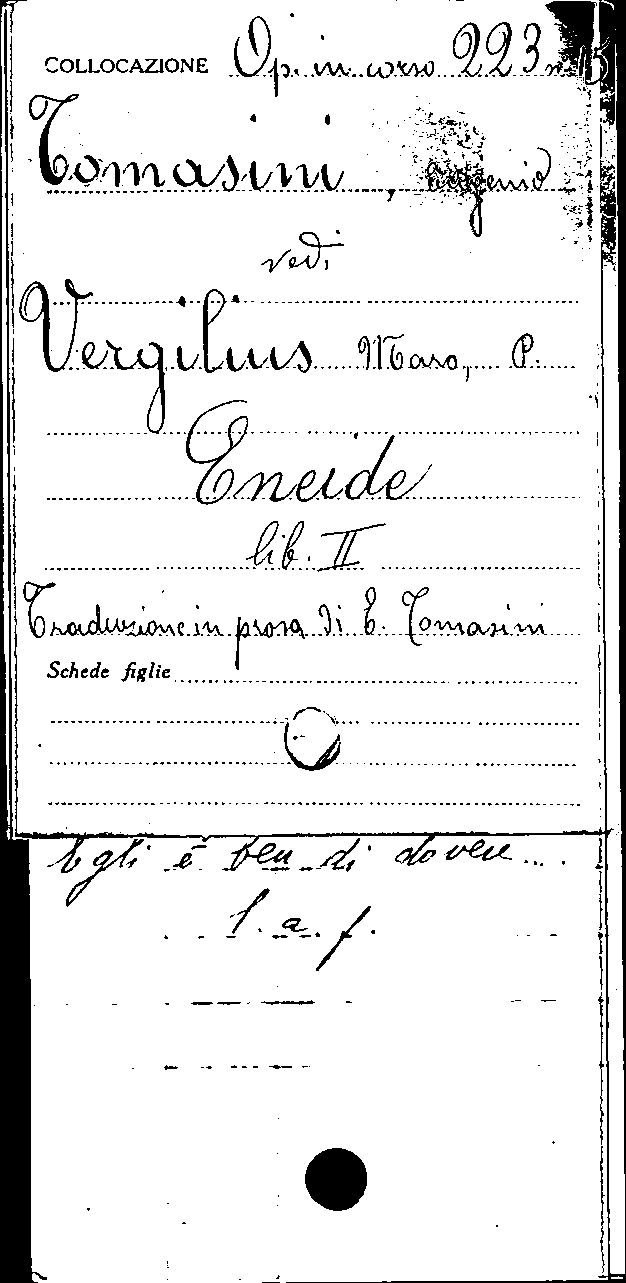 COLLOCAZIONE Op. in corso 223 n. 15
Tomasini, Eugenio
vedi
Vergilius Maro, P.
Eneide
lib. II
Traduzione in prosa di E. Tomasini
Schede figlie
Egli è ben di dovere....
l. a. f.